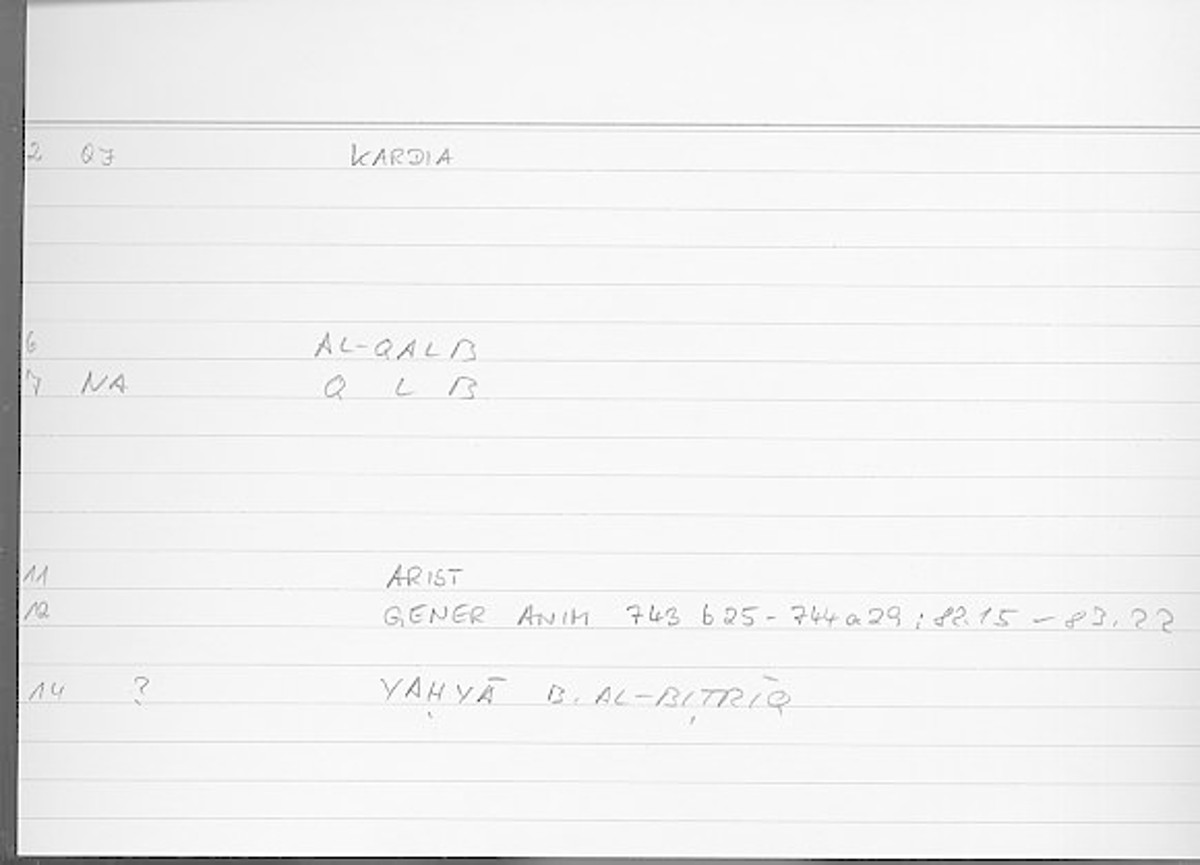 2 07 KARDIA
6 AL-QALB
7 NA Q L B
11 ARIST
12 GENER ANIM 743 b25-744a29; 82.15 - 83.22
14 ? YAḤYĀ B. AL-BIṬRĪQ